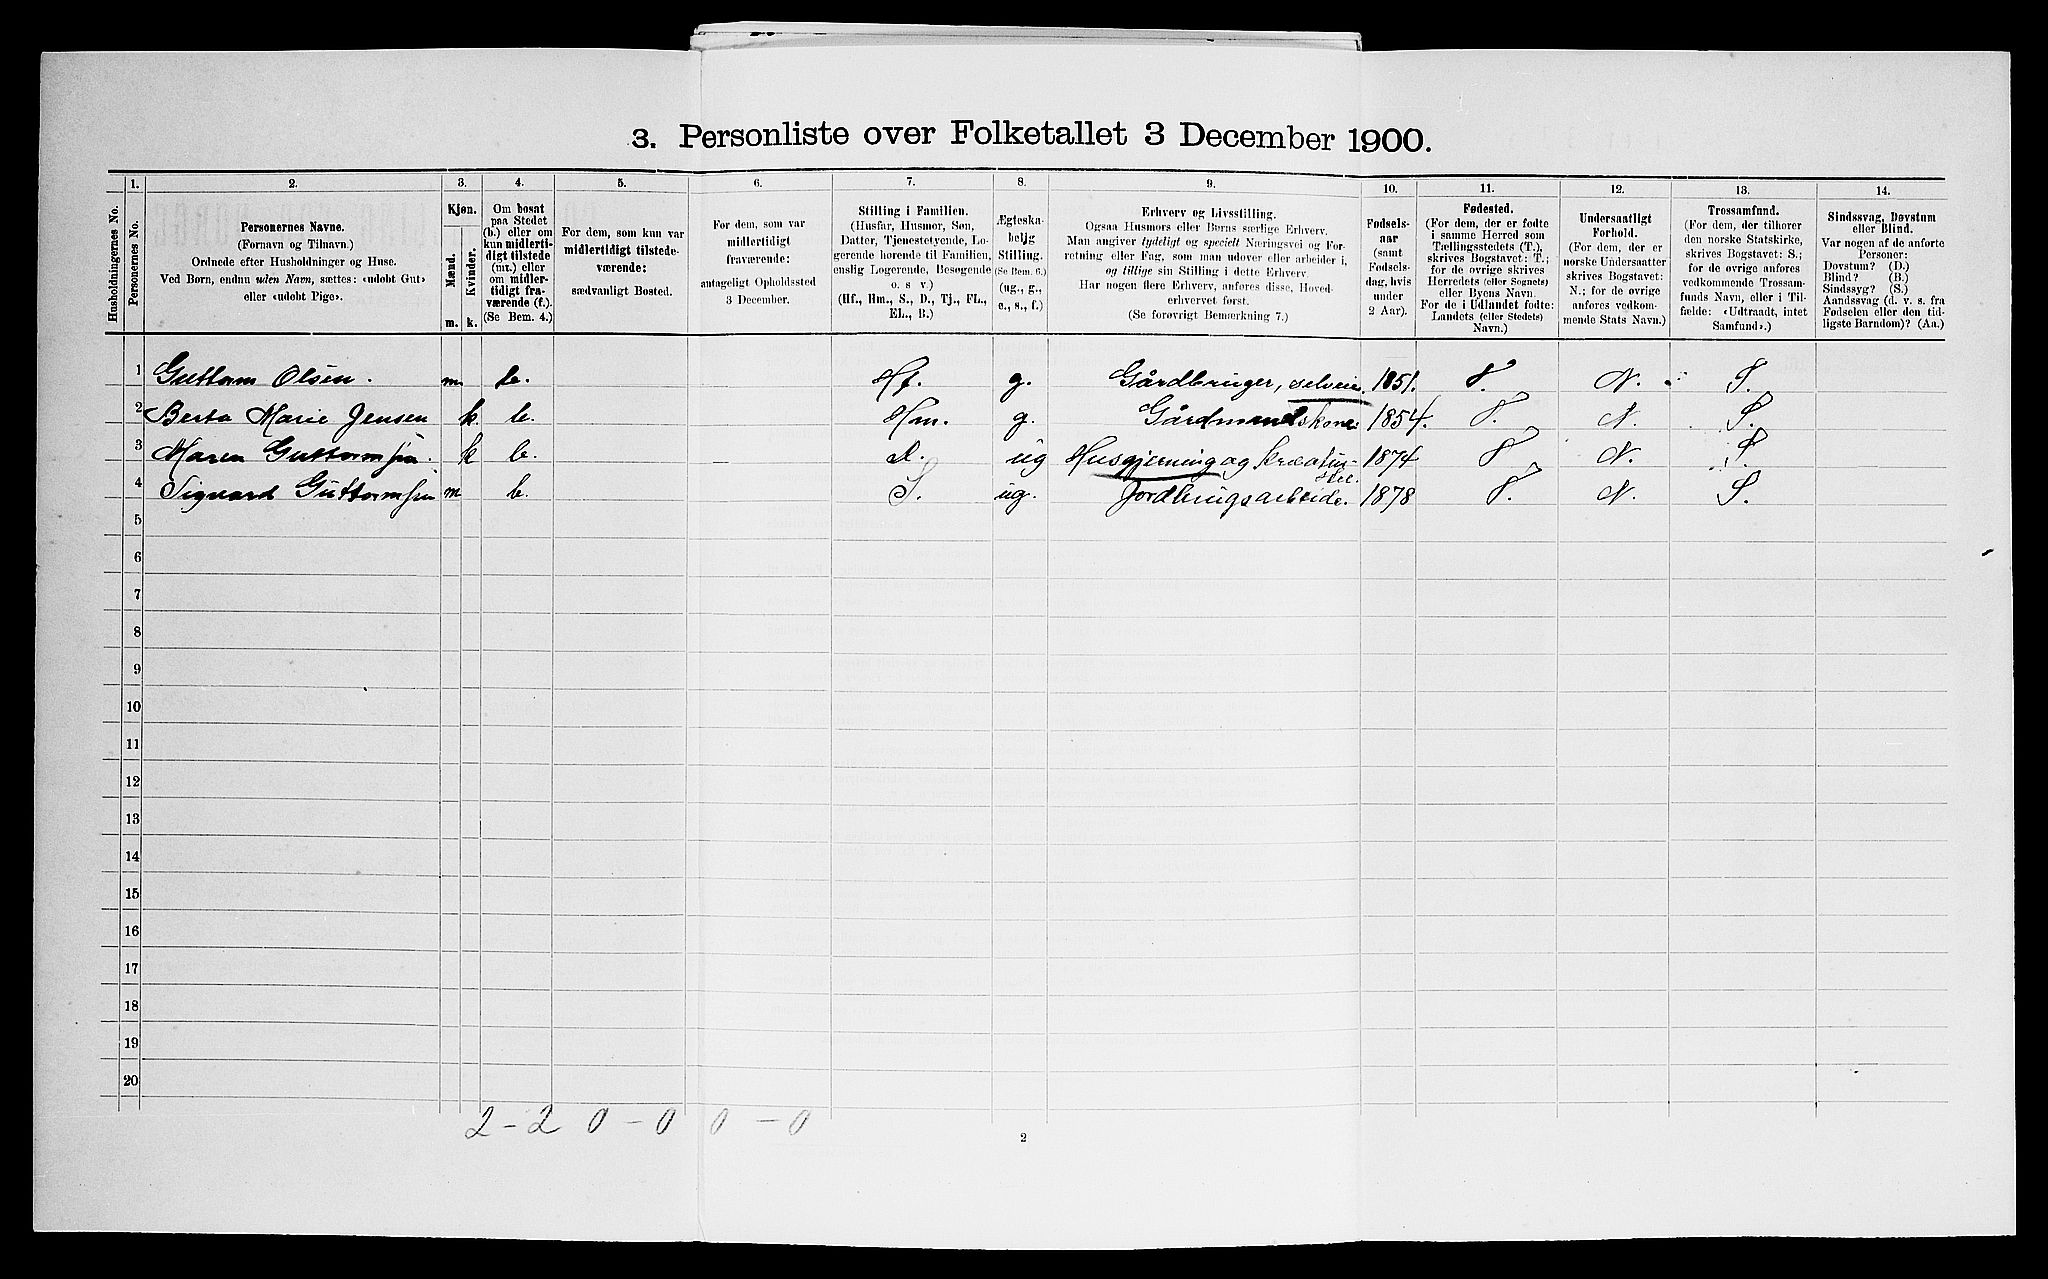 3. Personliste over Folketallet 3 December 1900.
1. 2. 3. 4. 5. 6. 7. 8. 9. 10. 11. 12. 13. 14.
Husholdningernes No.
Personernes No.
Personernes Navne.
(Fornavn og Tilnavn.)
Ordnede efter Husholdninger og Huse.
Ved Børn, endnu uden Navn, sættes: «udøbt Gut»
eller «udøbt Pige».
Kjøn.
Mænd.
Kvinder.
m. k.
Om bosat
paa Stedet
(b.) eller om
kun midlerti-
digt tilstede
(mt.) eller
om midler-
tidigt fra-
værende (f.).
(Se Bem. 4.)
For dem, som kun var
midlertidigt tilstede-
værende:
sædvanligt Bosted.
For dem, som var
midlertidigt
fraværende:
antageligt Opholdssted
3 December.
Stilling i Familien.
(Husfar, Husmor, Søn,
Datter, Tjenestetyende, Lo-
gerende hørende til Familien,
enslig Logerende, Besøgende
o. s v.)
(Hf., Hm., S., D., Tj., FL.,
EL., B.)
Ægteska-
belig
Stilling.
(Se Bem. 6.)
(ug., g.,
e., s., f.)
Erhverv og Livsstilling.
Ogsaa Husmors eller Børns særlige Erhverv.
Man angiver tydeligt og specielt Næringsvei og For-
retning eller Fag, som man udøver eller arbeider i,
og tillige sin Stilling i dette Erhverv.
Har nogen flere Erhverv, anføres disse, Hoved-
erhvervet først.
(Se forøvrigt Bemærkning 7.)
Fødsels-
aar
(samt
Fødsels-
dag, hvis
under
2 Aar).
Fødested.
(For dem, der er fødte
i samme Herred som
Tællingsstedets (T.),
skrives Bogstavet: T.;
for de øvrige skrives
Herredets (eller Sognets)
eller Byens Navn.
For de i Udlandet fødte:
Landets (eller Stedets)
Navn.)
Undersaatligt
Forhold.
(For dem, der er
norske Undersaatter
skrives Bogstavet:
N.; for de øvrige
anføres vedkom-
mende Stats Navn.)
Trossamfund.
(For dem, der tilhører
den norske Statskirke,
skrives Bogstavet: S.;
for de øvrige anføres
vedkommende Trossam-
funds Navn, eller i Til-
fælde: «Udtraadt, intet
Samfund».)
Sindssvag, Døvstum
eller Blind.
Var nogen af de anførte
Personer:
Døvstum? (D.)
Blind? (B.)
Sindssyg? (S.)
Aandssvag (d. v. s. fra
Fødselen eller den tid-
ligste Barndom)? (Aa.)
1 Guttorm Olsen. m. b. Hf. g. Gårdbruger, selveier. 1851. T. N. S.
2 Berta Marie Jensen k. b. Hm. g. Gårdmandskone 1854. T. N. S.
3 Maren Guttormsen. k b. D. ug Husgjerning og kreatur-
stel. 1874 T N. S.
4 Sigvard Guttormsen m b. S. ug. Jordbrugsarbeide. 1878 T. N. S.
5
6
7
8
9
10
11
12
13
14
15
16
17
18
19
20
2 - 2 0 - 0 0 - 0
2